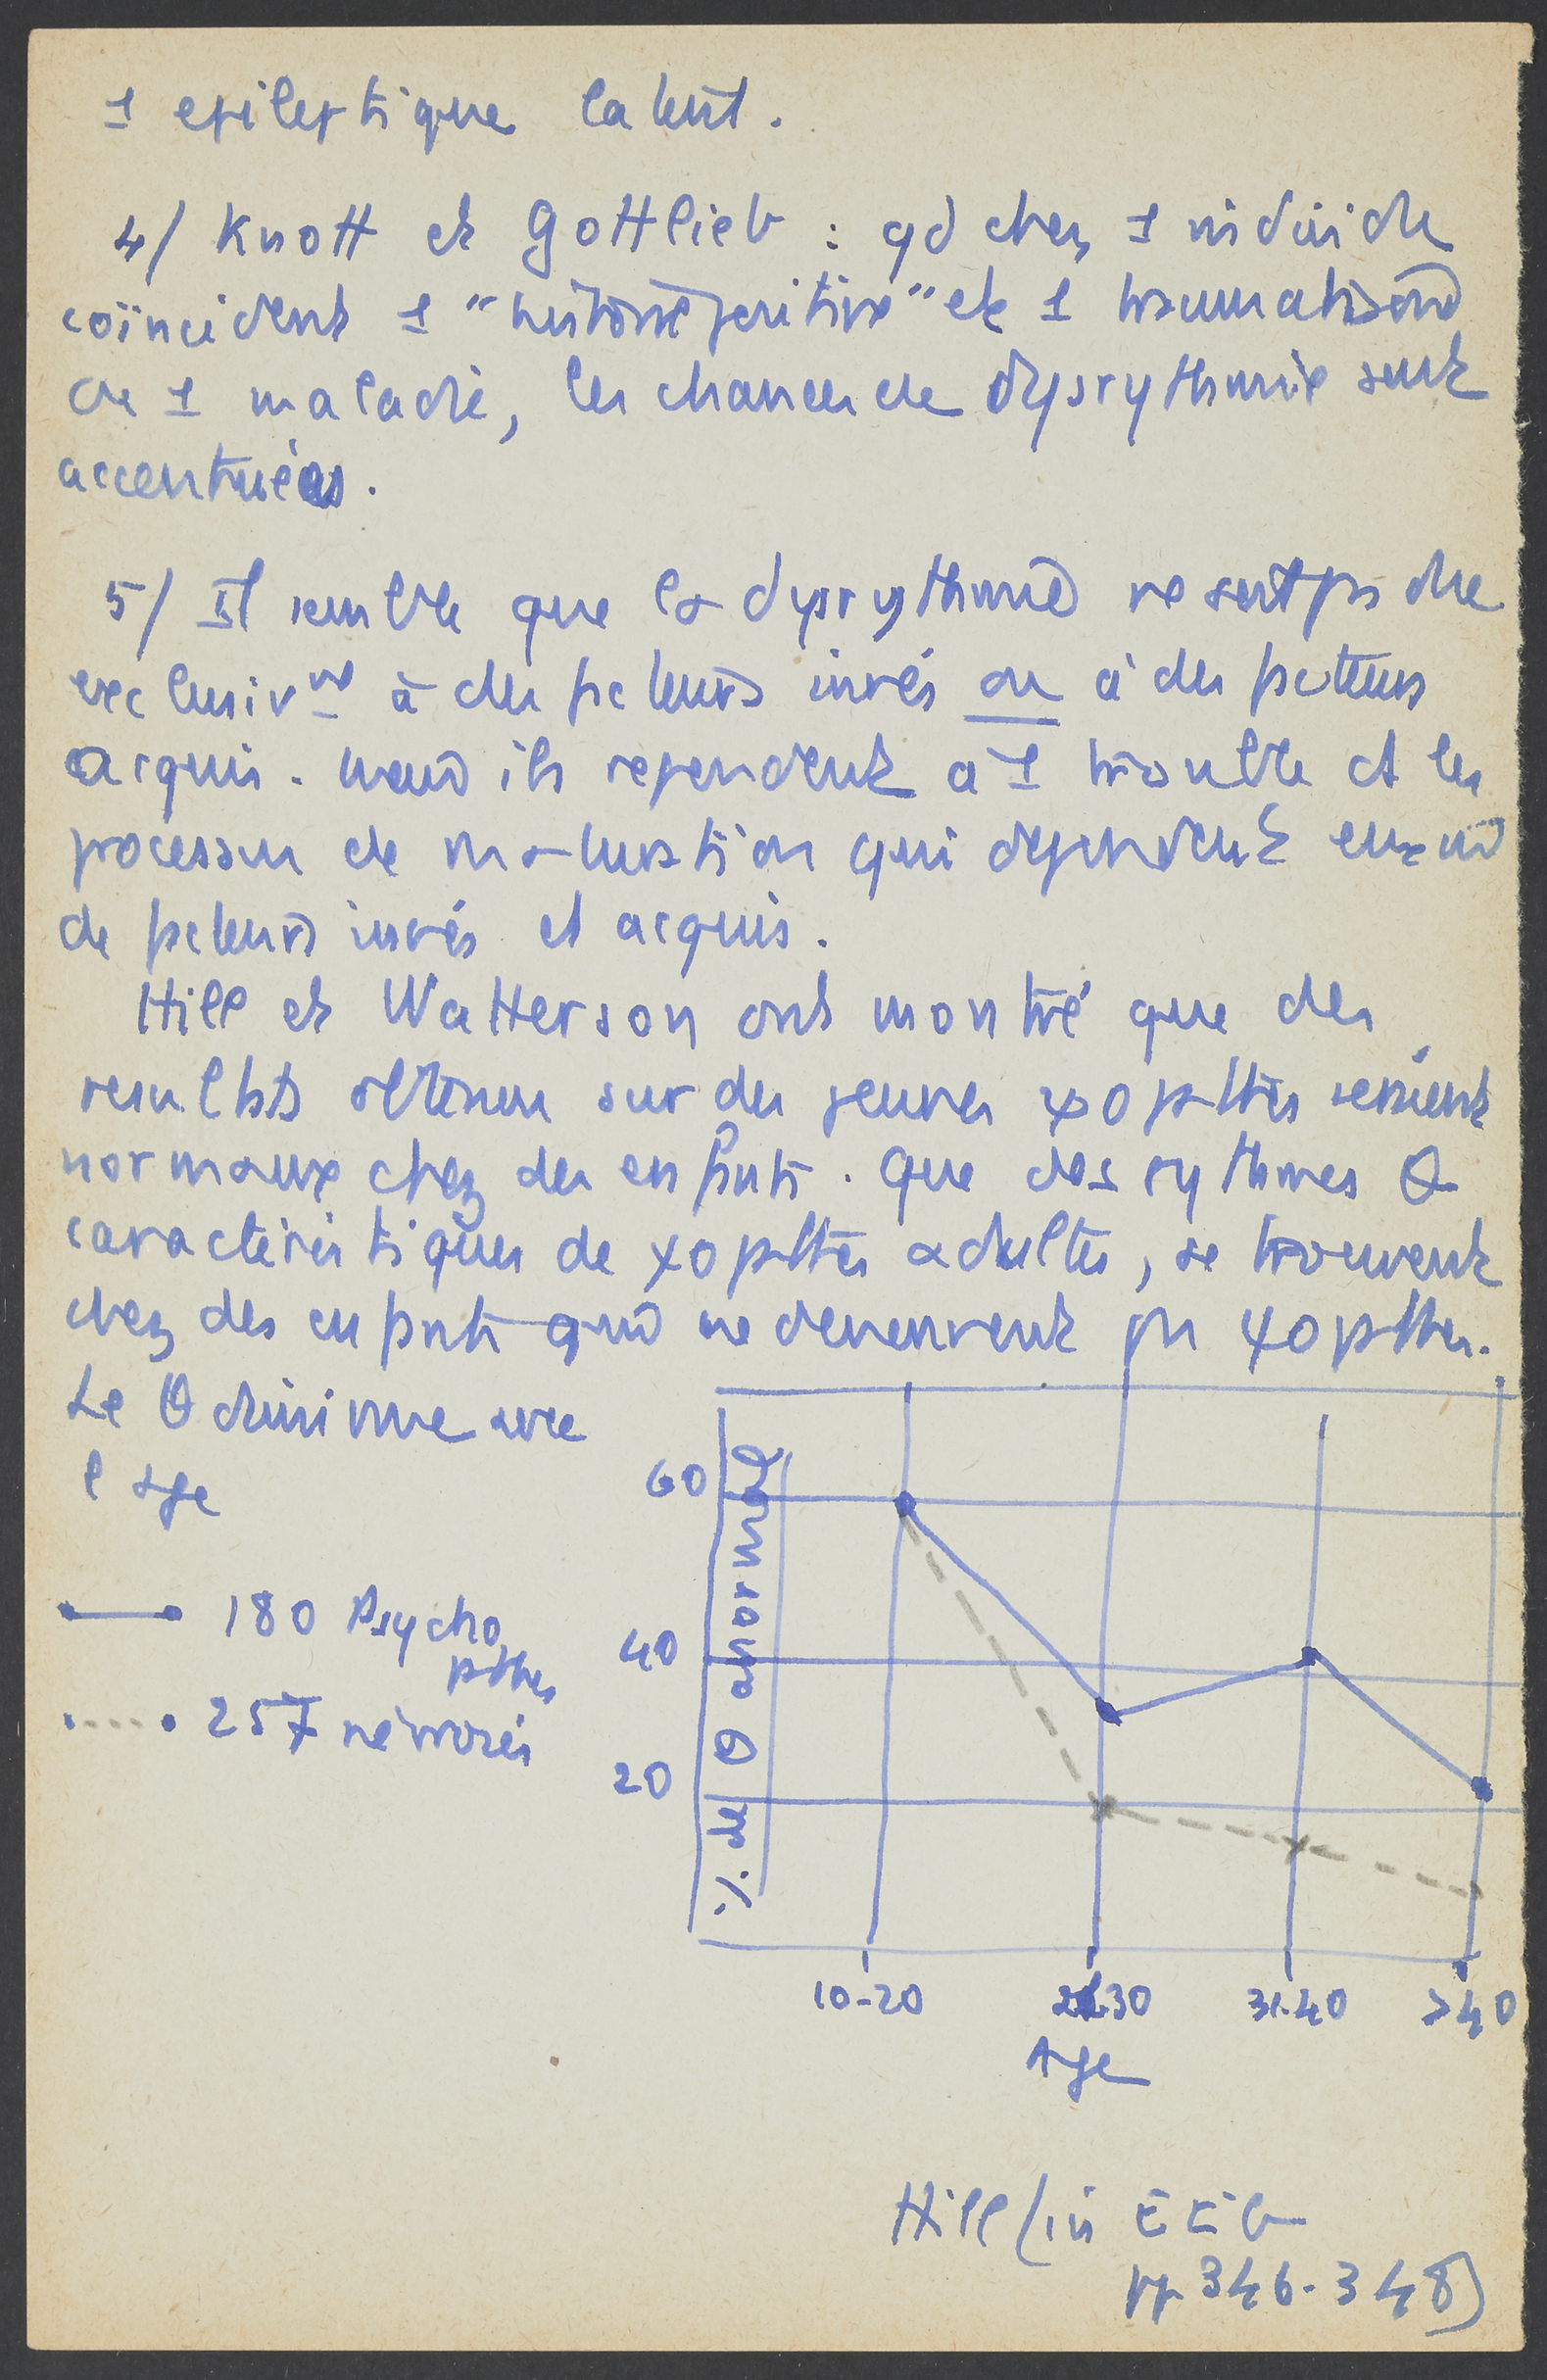 1 epileptique latent.
4/ Knott et Gottlieb : qd chez 1 individu
coïncident 1 "histoire positive" et 1 traumatisme
ou 1 maladie, les chances de dysrythmie sont
accentuées.
5/ Il semble que la dysrythmie ne soit pas due
exclusivmt à des facteurs innés ou à des facteurs
acquis. mais ils rependent a 1 trouble ds les
processus de maturation qui dependent eux mm
de facteurs innés et acquis.
Hill et Watterson ont montré que des
resultats obtenus sur des jeunes ψopathes seraient
normaux chez des enfants. Que des rythmes θ
caractéristiques de ψopathes adultes, se trouvent
chez des enfants qui ne deviennent pas ψopathes.
Le θ diminue avec
l'age
180 Psycho
pathes
257 névrosés
% de θ anormal
60
40
20
10-20 21.30 31.40 >40
Age
Hill (in EEG
pp 346-348)